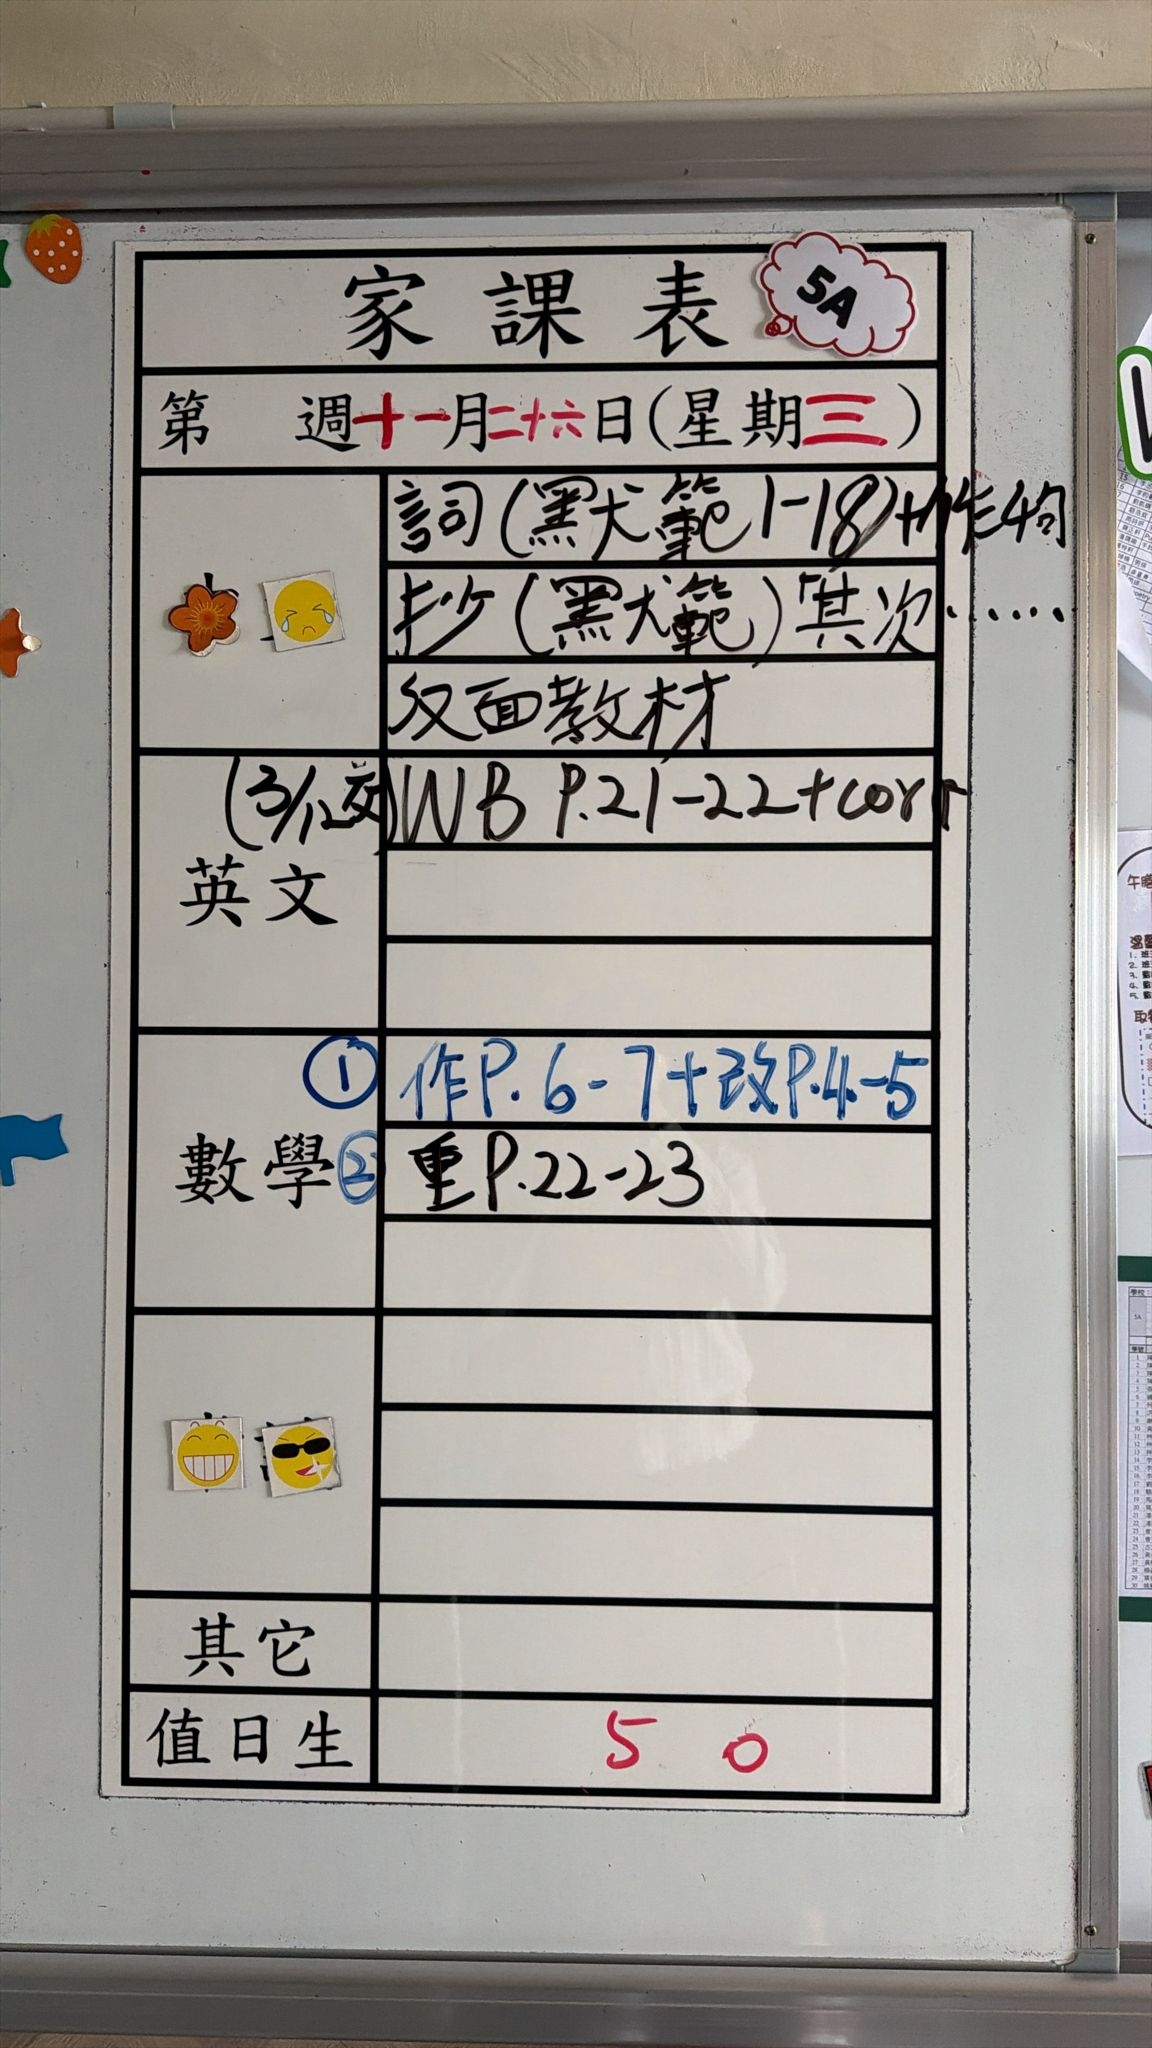 家課表 5A
第 週十一月二十六日(星期三)
詞(黑犬範1-18)+作句
抄(黑犬範)「其次……
反面教材
(3/12交)WB P.21-22+corr
英文
① 作P.6-7+改P.4-5
數學② 重P.22-23
其它
值日生 5 0